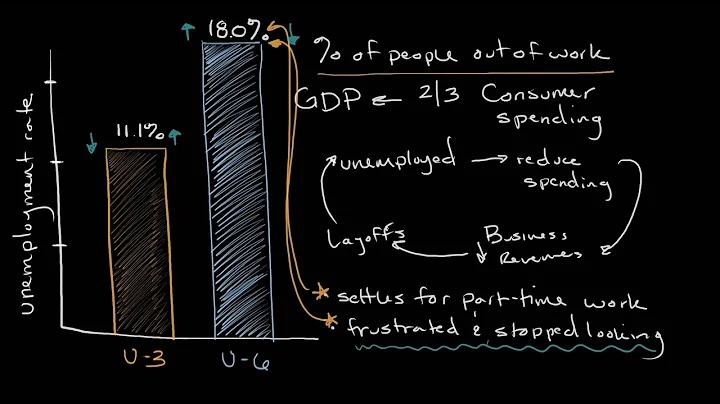 18.0%
% of people out of work
GDP ← 2/3 Consumer
spending
11.1%
unemployment rate
unemployed → reduce
spending
Layoffs
Business
↓ Revenues
* settles for part-time work
* frustrated & stopped looking
U-3
U-6